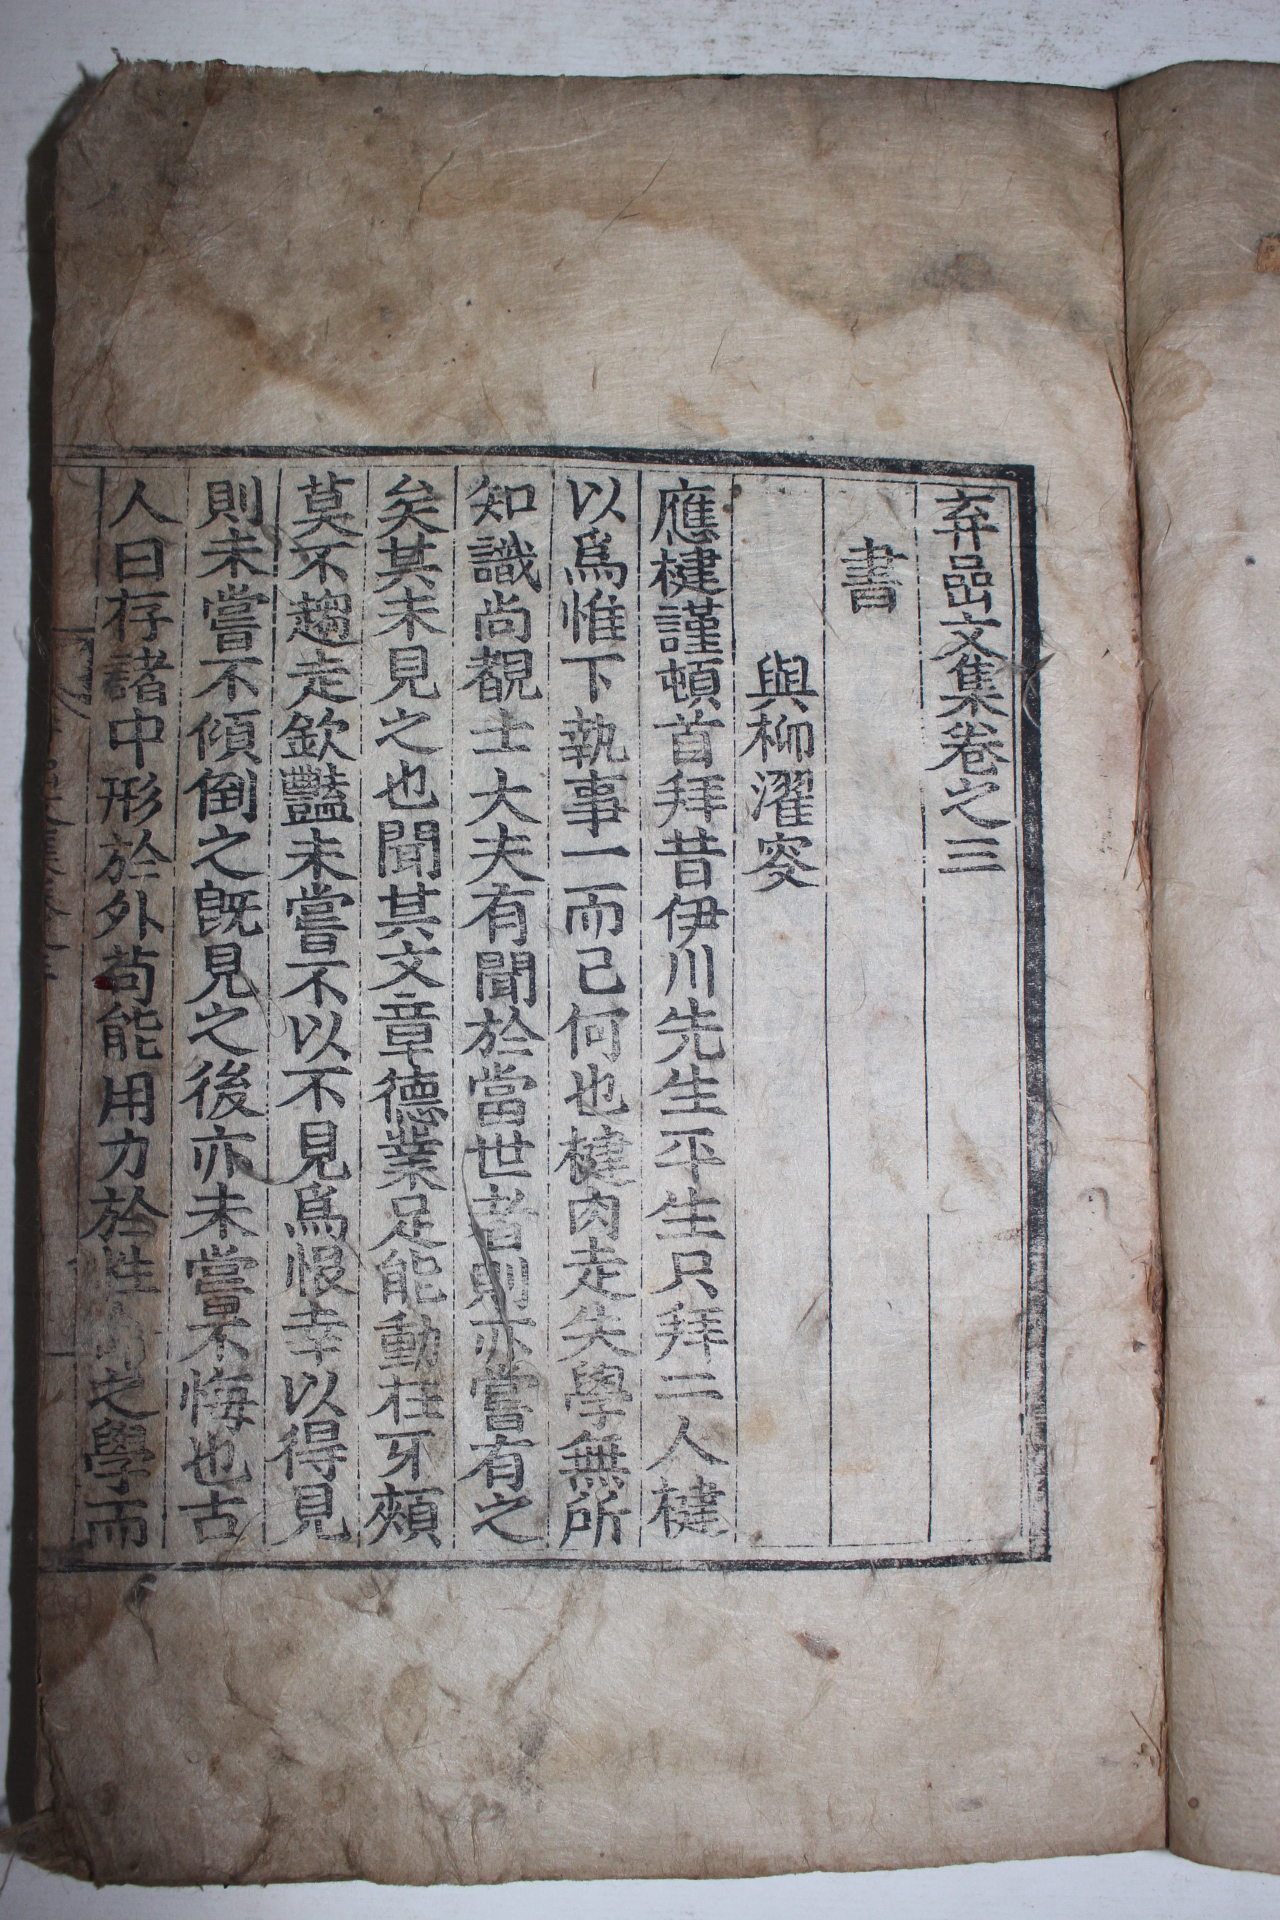 弃嵒文集卷之三
書
與柳濯窔
應楗謹頓首拜昔伊川先生平生只拜二人楗
以爲惟下執事一而已何也楗肉走失學無所
知識尚覩士大夫有聞於當世者則亦嘗有之
矣其未見之也聞其文章德業足能動柱牙頰
莫不趨走欽豔未嘗不以不見爲恨幸以得見
則未嘗不傾倒之旣見之後亦未嘗不悔也古
人曰存諸中形於外苟能用力於性之學而